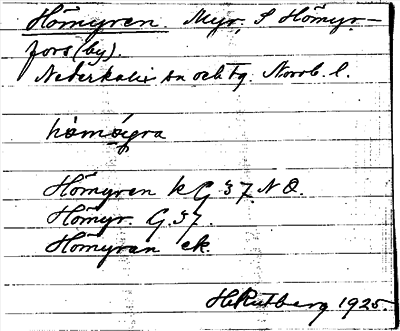 Hömyren. Myr, S Hömyr-
fors (by).
Nederkalix sn och tg. Norrb. l.
Hömyren k G 37 NO.
Hömyr. G. 37.
Hömyran ek.
H. Rutberg 1925.